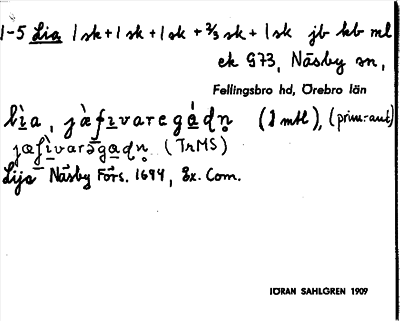 1-5 Lia 1 sk + 1 sk + 1 sk + 2/3 sk + 1 sk jb kb ml
ek 973, Näsby sn,
Fellingsbro hd, Örebro län
lìa, jæ̀fivaregádn (1 mtl), (prim.-aut)
jæfivarəgadn (TrMS)
Lija Näsby Förs. 1694, Ex. Com.
JÖRAN SAHLGREN 1909